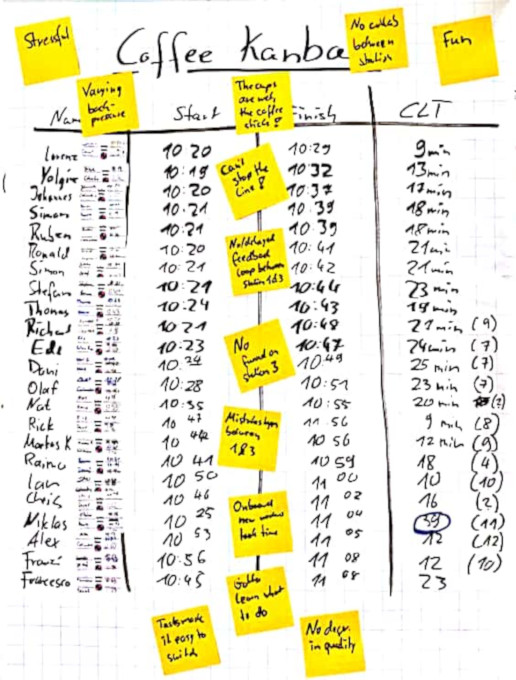 Stressful
Coffee Kanba
No
between
station
Fun
Varying
back-
pressure
The cups
are wet,
the coffee
sticks!
Name
Start
Finish
CLT
Lorenz 10:20 10:29 9min
Holger 10:19 10:32 13min
Johannes 10:20 10:37 17min
Simon 10:21 10:39 18min
Ruben 10:21 10:39 18min
Ronald 10:20 10:41 21min
Simon 10:21 10:42 21min
Stefan 10:21 10:44 23min
Thomas 10:24 10:43 19min
Richard 10 21 10:48 27min (9)
Ede 10:23 10:47 24min (7)
Dani 10:24 10:49 25 min (7)
Olaf 10:28 10:51 23 min (7)
Nat 10:35 10:55 20 min (?)
Rick 10 47 11 56 9 min (8)
Markus K 10 44 10 56 12 min (9)
Rainer 10 41 10 59 18 (4)
Ian 10 50 11 00 10 (10)
Chris 10 46 11 02 16 (2)
Niklas 10 25 11 04 39 (11)
Alex 10 53 11 05 12 (12)
Franzi 10:56 11 08 12 (10)
Francesco 10:45 11 08 23
Can't
stop the
Line!
No/delayed
feedback
loop between
station 1&3
No
on
station 3
Mistakes
between
1&3
Onboard
new
took time
learn what
to do
Tasks made
it easy to
switch
No degr.
in quality